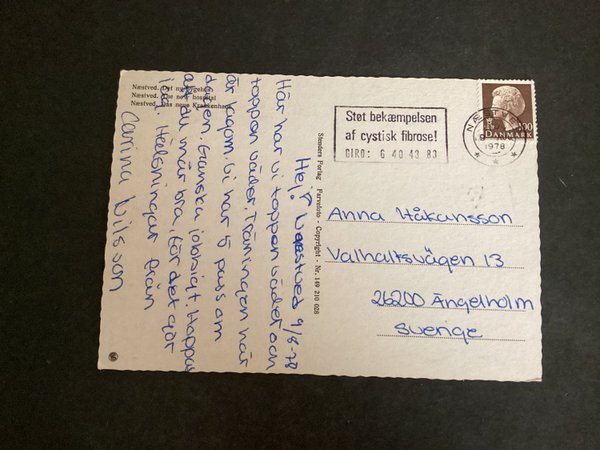 Næstved. Det ny sygehus
Næstved. The new hospital
Næstved. Das neue Krankenhaus
Hej! Næstved 9/8-78
Här har vi toppen vädret och
toppen väder. Träningen här
är lagom. Vi har 5 pass om
dagen. Ganska jobbigt. Hoppas
att du mår bra, för det gör
jag. Hälsningar från
Carina Nilsson
Stenders Forlag - Farvefoto - Copyright - Nr. 149 210 028
Støt bekæmpelsen
af cystisk fibrose!
GIRO: 6 40 43 83
NÆSTVED
1978
100
DANMARK
Anna Håkansson
Valhallsvägen 13
26200 Ängelholm
Sverige